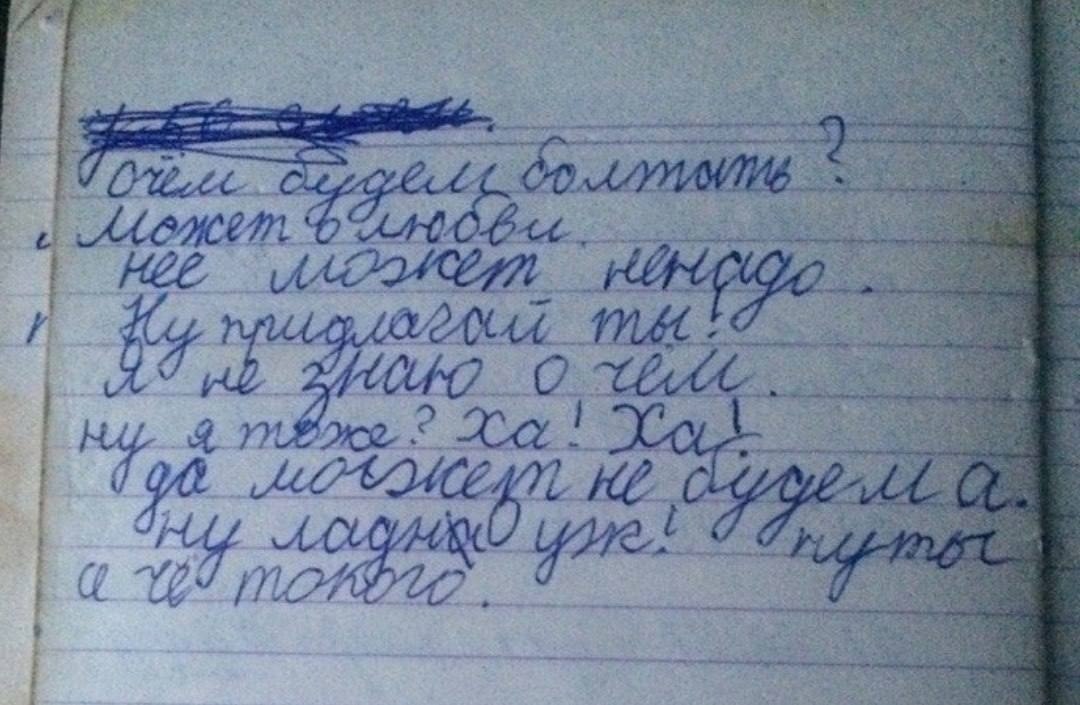 очём будем болтать?
Может о любви.
нее может ненадо.
Ну придлагай ты!
Я не знаю о чём.
ну я тоже? Ха! Ха!
да может не будем а.
ну ладно уж! ну ты
а чё токого.